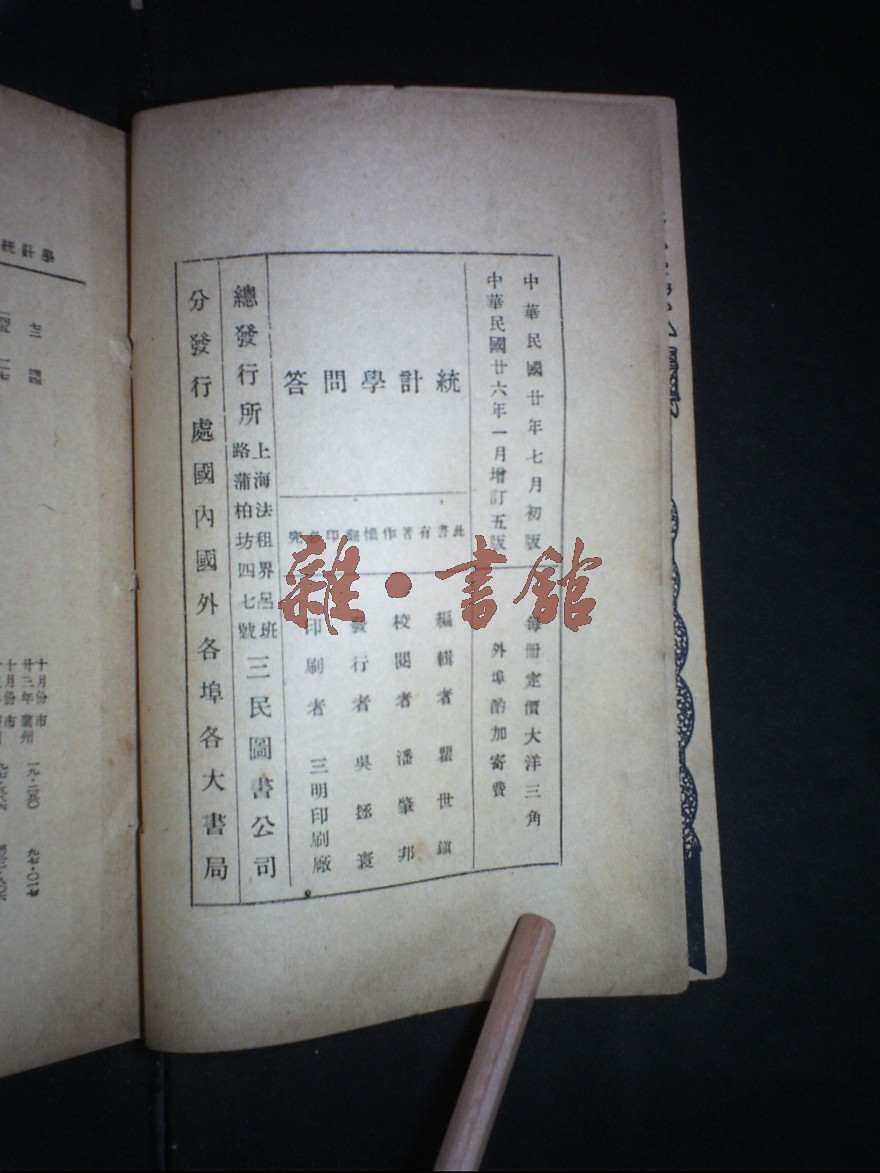 中華民國廿年七月初版
中華民國廿六年一月增訂五版
每冊定價大洋三角
外埠酌加寄費
統計學問答
此書有著作權翻印必究
編輯者 瞿世鎮
校閱者 潘肇邦
發行者 吳拯寰
印刷者 三明印刷廠
總發行所
上海法租界呂班
路蒲柏坊四七號
三民圖書公司
分發行處國內國外各埠各大書局
雜·書館
學計統
十月份市
廿三年蘭州